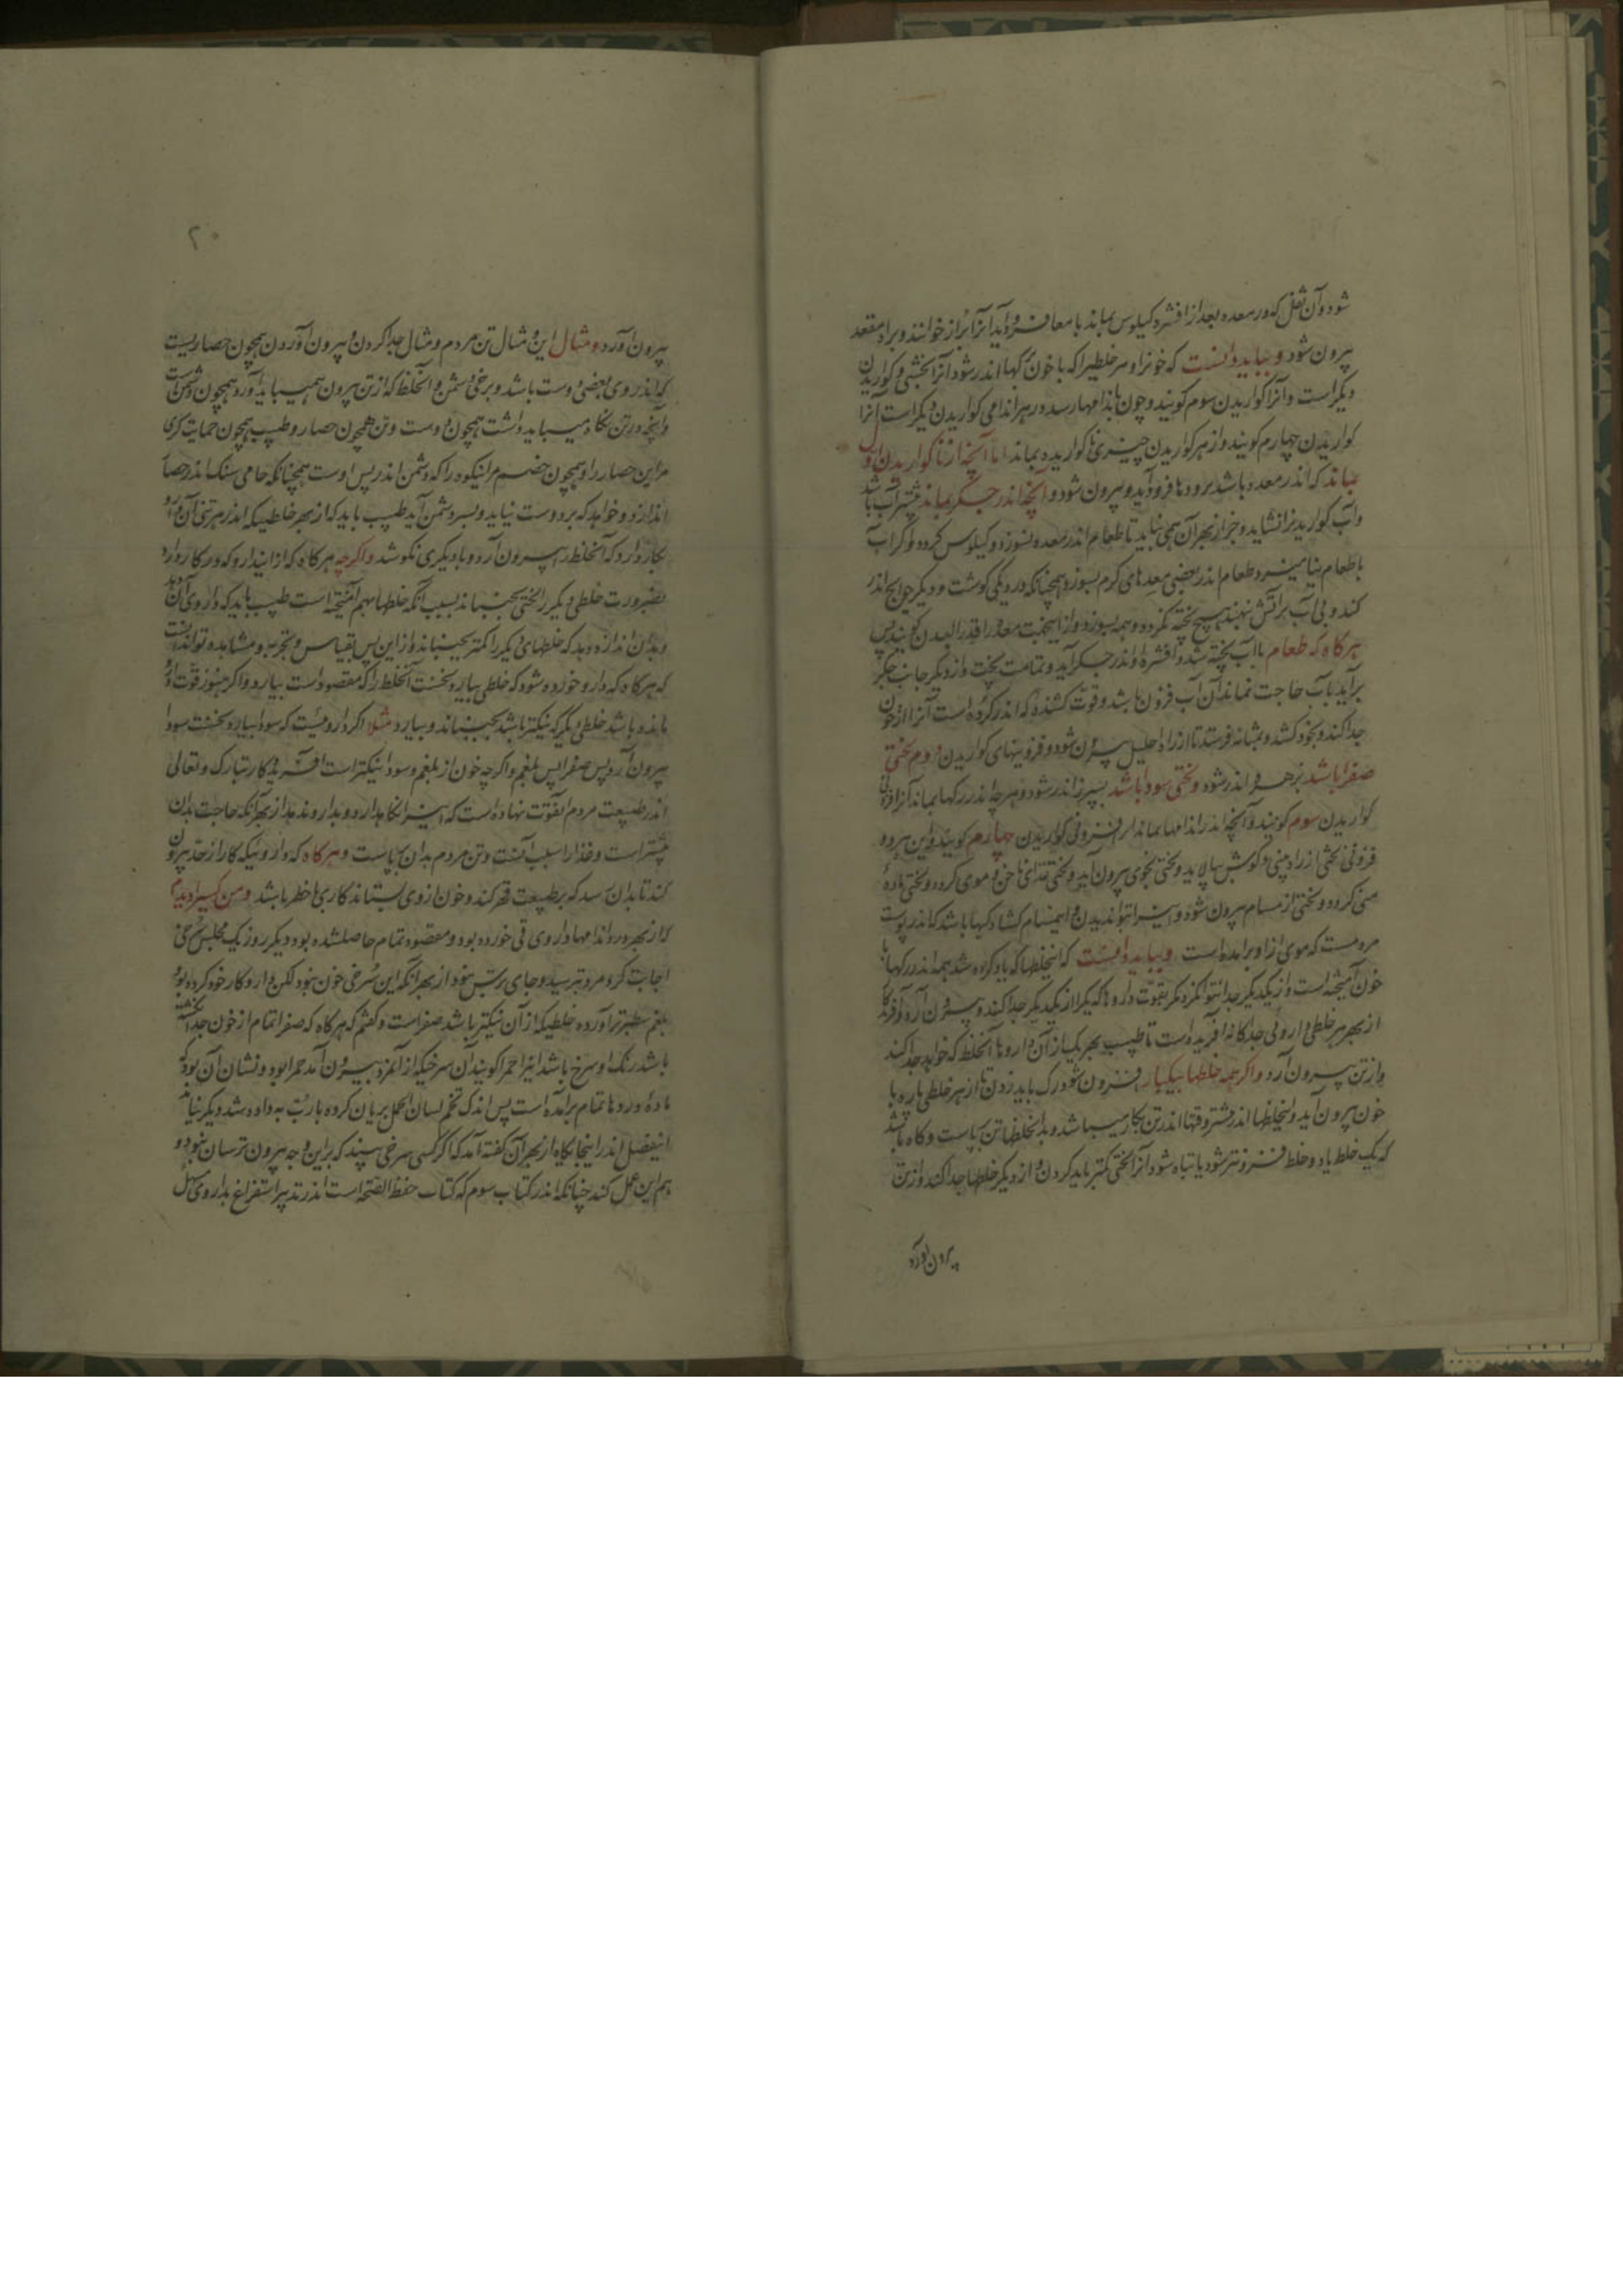 شود و آن ثفل که در معده بعد از افشره کیلوس بماند بامعا فرود آید آنرا براز خوانند و براه مقعد
بیرون شود و بباید دانست که خونرا و هر خلطیرا که با خون برگها اندر شود آنرا بختنی و کواریدن
دیگر است و آنرا کواریدن سوم کویند و چون باندامها رسد در هر اندامی کواریدن دیگر است آنرا
کواریدن چهارم کویند و از هر کواریدن چیزی ناکواریده بماند اما آنچه از ناکواریدن اول
بماند که اندر معده باشد برودها فرود آید و بیرون شود و آنچه اندر جکر بماند بیشتر آب باشد
و آب کواریدنرا نشاید و جز از بهر آن همی نباید تا طعام اندر معده نسوزد و کیلوس کردد و اکر آب
با طعام نیامیزد طعام اندر بعضی معدهای کرم بسوزد همچنانکه در دیکی کوشت و دیکر حوایج اندر
کنند و بی آب بر آتش نهند هیچ پخته نکردد و همه بسوزد و از اینجهت معده را قدر البدن کویند پس
هرکاه که طعام با آب پخته شد و افشره او اندر جکر آید و تمامت پخت و از دیکر جانب جکر
برآید بآب حاجت نماند آن آب فزونی باشد و قوت کشنده که اندر کرده است آنرا از خون
جدا کند و بخود کشد و بمثانه فرستد تا از راه احلیل بیرون شود و فزونیهای کواریدن دوم لختی
صفرا باشد بزهره اندر شود و لختی سودا باشد بسپرز اندر شود و هرچه اندر رکها بماند آنرا فزونی
کواریدن سوم کویند و آنچه اندر اندامها بماند از فزونی کواریدن چهارم کویند و این هر دو
فزونی لختی از راه بینی و کوش بپالاید و لختی بخوی بیرون آید و لختی غذای ناخن و موی کردد و لختی ماده
منی کردد و لختی از مسام بیرون شود و آنرا نتوان دیدن و این مسام کشادکیها باشد که اندر پوست
مردمست که موی از او برآمده است و بباید دانست که اینخلطها که یاد کرده شد همه اندر رکها با
خون آمیخته است و از یکدیگر جدا نتوان کرد مکر بقوت داروها که یکرا از یکدیگر جدا کند و بیرون آرد و آفریدکار
از بهر هر خلطی داروئی جداکانه آفریده است تا طبیب بهر یک از آن داروها آنخلط که خواهد جدا کند
و از تن بیرون آرد و اکر همه خلطها بیکبار افزون شود رک باید زدن تا از هر خلطی پاره با
خون بیرون آید و اینخلطها اندر بیشتر وقتها اندر تن بکار میباشد و بدانخلطها تن بپاست و کاه باشد
که یک خلط یا دو خلط فزونتر شود یا تباه شود آنرا لختی کمتر باید کردن و از دیکر خلطها جدا کند و از تن
بیرون آورد
۲۰
بیرون آورد و مثال این و مثال تن مردم و مثال جدا کردن و بیرون آوردن همچون حصاریست
که اندر وی بعضی دوست باشد و برخی دشمن و آنخلط که از تن بیرون همیباید آورد همچون دشمن است
و آنچه در تن نکاه میباید داشت همچون دوست و تن همچون حصار و طبیب همچون حمایت کری
مر این حصار را و همچون خصم مر اینکروه را که دشمن اندر پس اوست همچنانکه حامی سنک اندر حصار
اندازد و خواهد که بر دوست نیاید و بسر دشمن آید طبیب باید که از بهر خلطیکه اندر هر تنی آن دارو
بکار دارد که آنخلط را بیرون آرد و با دیکری نکوشد و اکرچه هرکاه که از این دارو که در کار دارد
بضرورت خلطی دیکر را لختی بجنباند بسبب آنکه خلطها بهم آمیخته است طبیب باید که داروی آن دهد
و بدان اندازه دهد که خلطهای دیکر را کمتر بجنباند و از این پس بقیاس و تجربه و مشاهده توان دانست
که هرکاه که دارو خورده شود که خلطی بیارد نخست آنخلط را که مقصود است بیارد و اکر هنوز قوت دارو
مانده باشد خلطی دیکر که نیکتر باشد بجنباند و بیارد مثلا اکر داروئیست که سودا بیارد نخست سودا
بیرون آرد پس صفرا پس بلغم و اکرچه خون از بلغم و سودا نیکتر است آفریدکار تبارک و تعالی
اندر طبیعت مردم این قوت نهاده است که این را نکاهدارد و بدارو ندهد از بهر آنکه حاجت بدان
بیشتر است و غذا را سبب آنست و تن مردم بدان بپاست و هرکاه که داروئیکه کار از حد بیرون
کند تا بدان رسد که بر طبیعت قهر کند و خون از وی بستاند کاری با خطر باشد و من کسیرا دیدم
که از بهر درد اندامها داروی قی خورده بود و مقصود تمام حاصلشده بود دیکر روز یک مجلس سرخی
اجابت کرد مرد بترسید و جای ترس نبود از بهر آنکه این سرخی خون نبود لکن دارو کار خود کرده بود
بلغم سطبرتر آورده خلطیکه از آن نیکتر باشد صفراست و کفتم که هرکاه که صفرا تمام از خون جدا نکشته
باشد رنک او سرخ باشد آنرا حمرا کویند آن سرخیکه از آنمرد بیرون آمد حمرا بود و نشان آن بود که
ماده درد تمام برآمده است پس اندک تخم لسان الحمل بریان کرده با رب به داده شد دیکر نیامد
اینفصل اندر اینجایکاه از بهر آن کفته آمد که اکر کسی سرخی بیند که بر این وجه بیرون ترسان نبود و
هم این عمل کند چنانکه اندر کتاب سوم که کتاب حفظ الصحه است اندر تدبیر استفراغ بداروی مسهل